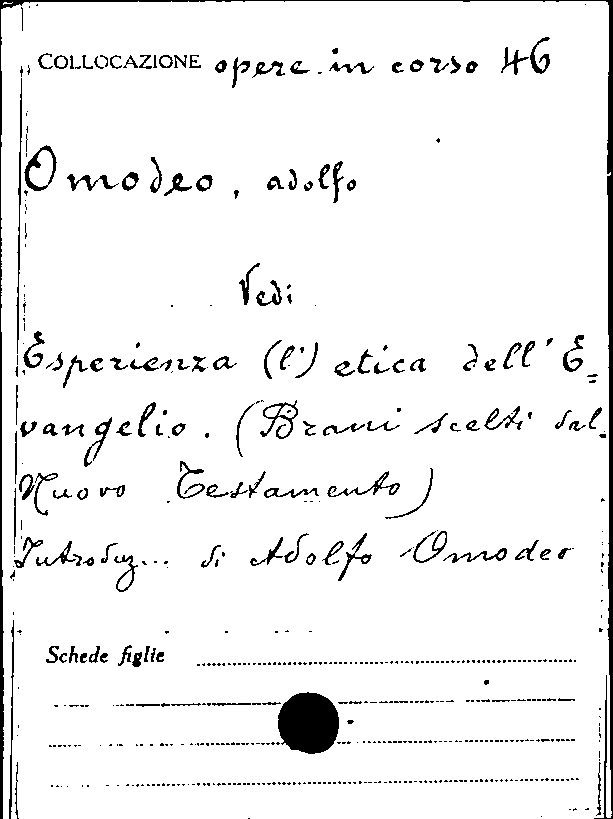 COLLOCAZIONE opere in corso 46
Omodeo, adolfo
Vedi
Esperienza (l') etica dell' E=
vangelio. (Brani scelti dal
Nuovo Testamento)
Introduz... di Adolfo Omodeo
Schede figlie